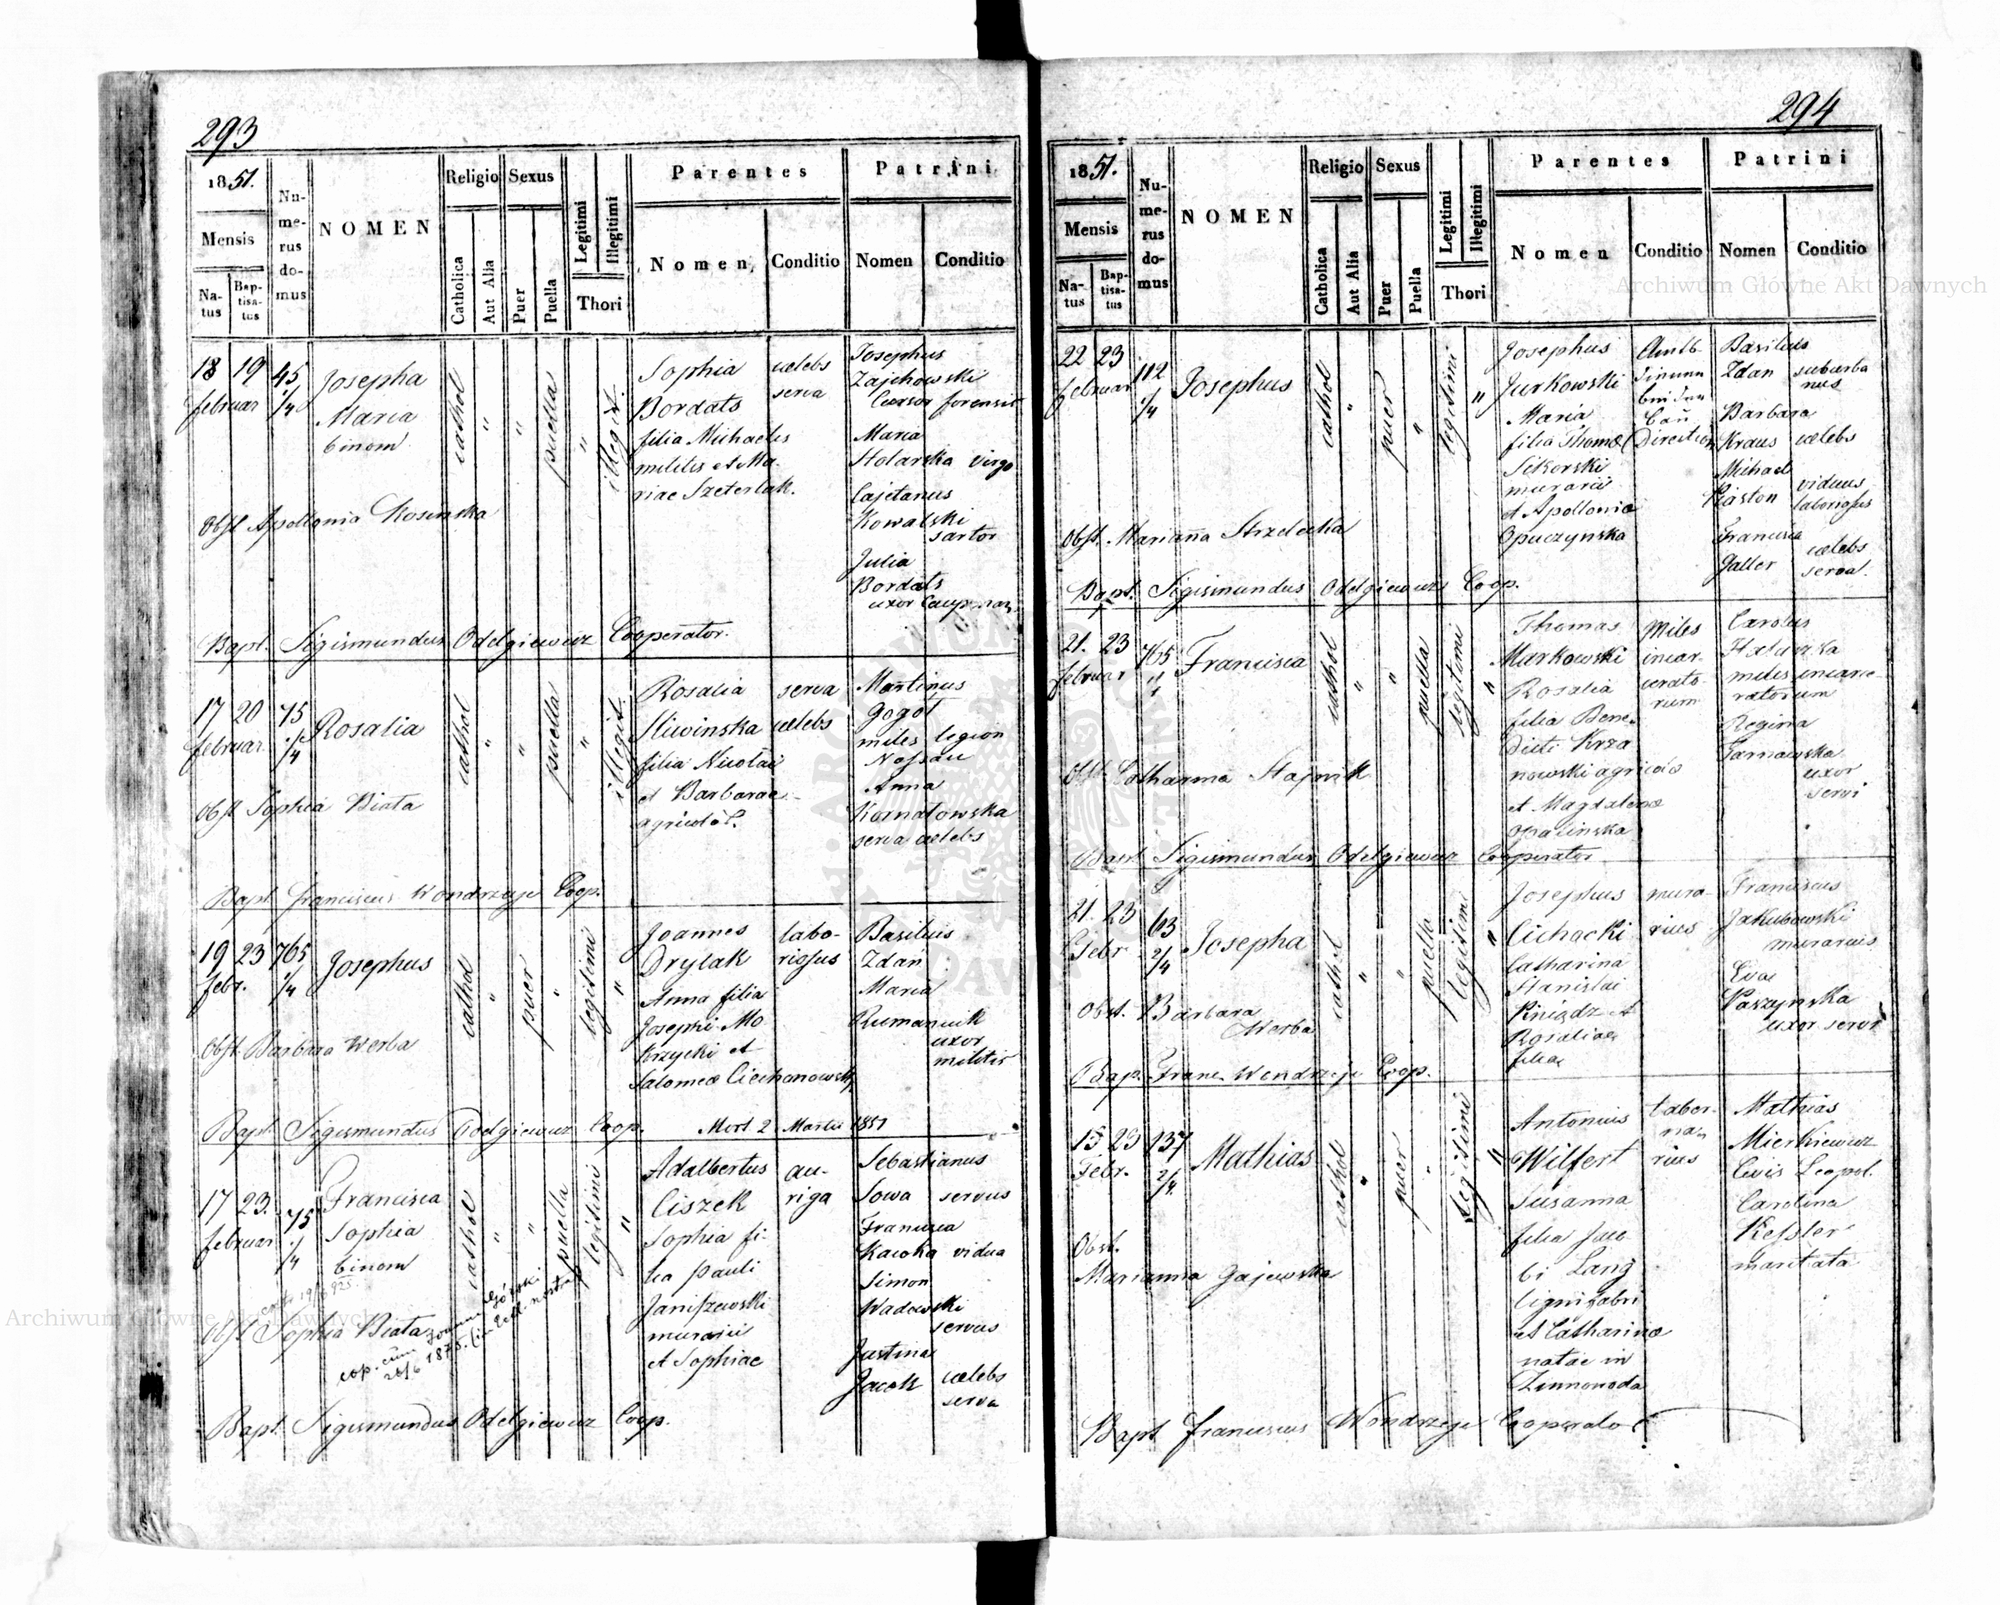 293
1851.
Mensis
Na-
tus
Bap-
tisa-
tus
Nu-
me-
rus
do-
mus
NOMEN
Religio
Catholica
Aut Alia
Sexus
Puer
Puella
Legitimi
Illegitimi
Thori
Parentes
Nomen
Conditio
Patrini
Nomen
Conditio
18 19 45
februar 1/4
Josepha
Maria
binom
cathol
"
"
puella
"
illegit.
Sophia
Bordats
filia Michaelis
militis et Ma-
riae Szeterlak.
caelebs
serva
Josephus
Zajchowski
Cursor forensis
Maria
Stolarska virgo
Cajetanus
Kowalski
sartor
Julia
Bordats
uxor
Obst Apollonia Kosinska
Bapt. Sigismundus Odelgiewicz Cooperator.
17 20 75
februar. 1/4
Rosalia
cathol
"
"
puella
"
illegit.
Rosalia
Sliwinska
filia Nicolai
et Barbarae
agricol.
serva
caelebs
Martinus
Gogol
miles legion
Nassau
Anna
Kornatowska
serva caelebs
Obst Sophia Biata
Bapt Franciscus Wondrzeje Coop.
19 23 765
febr. 1/4
Josephus
cathol
"
puer
"
legitimi
"
Joannes
Drylak
Anna filia
Josephi Mo
krzycki et
Salomeae Ciechanowsk
labo-
riosus
Basilius
Zdan
Maria
Rumaniuk
uxor
militis
Obst. Barbara Werba
Bapt Sigismundus Odelgiewicz Coop. Mort 2 Martii 1851
17 23. 75
februar 1/4
Francisca
Sophia
binom
cathol
"
"
puella
legitimi
"
Adalbertus
Ciszek
Sophia fi-
lia Pauli
Janiszewski
murarii
et Sophiae
au-
riga
Sebastianus
Sowa servus
Francisca
Kacoka vidua
Simon
Wadowski
servus
Justina
Jacek caelebs
serva
Obst Sophia Biata
cop. cum
20/6 1875.
Bapt. Sigismundus Odelgiewicz Coop.
294
1851.
Mensis
Na-
tus
Bap-
tisa-
tus
Nu-
me-
rus
do-
mus
NOMEN
Religio
Catholica
Aut Alia
Sexus
Puer
Puella
Legitimi
Illegitimi
Thori
Parentes
Nomen
Conditio
Patrini
Nomen
Conditio
22 23 112
februar 1/4
Josephus
cathol
"
puer
"
legitimi
"
Josephus
Jurkowski
Maria
filia Thomae
Sikorski
murarii
et Apollonia
Opuczynska
Basilius
Zdan suburba
nus
Barbara
Kraus caelebs
Michael
Piaston viduus
laboriosus
Francisca
Galler caelebs
serva.
Obst. Marianna Strzelecka
Bapt. Sigismundus Odelgiewicz Coop.
21. 23 765
februar 1/4
Francisca
cathol
"
"
puella
legitimi
"
Thomas
Markowski
Rosalia
filia Bene-
dicti Krza
nowski agricolae
et Magdalenae
Opalinska
Miles
incar-
cerato-
rum
Carolus
miles incarce-
ratorum
Regina
Tarnawska
uxor
servi
Obst Catharina Stajnik
Bapt Sigismundus Odelgiewicz Cooperator
21. 23 63
Febr 2/4
Josepha
cathol
"
"
puella
legitimi
"
Josephus
Cichocki
Catharina
Stanislai
Kniądz et
Rosaliae
filia
mura-
rius
Franciscus
Jakubowski
murarius
Eva
Paszynska
uxor servi
Obst. Barbara
Werba
Bap. Franc Wondrzeje Coop.
15 23 137
Febr. 2/4
Mathias
cathol
"
puer
"
Legitimi
"
Antonius
Wilfert
Susanna
filia Jaco
bi Lang
lignifabri
et Catharinae
natae in
labor-
na-
rius
Mathias
Mierkiewicz
Civis Leopol.
Carolina
Kessler
maritata
Obst.
Marianna Gajewska
Bapt Franciscus Wondrzeje Cooperator
Archiwum Główne Akt Dawnych
Archiwum Główne Akt Dawnych